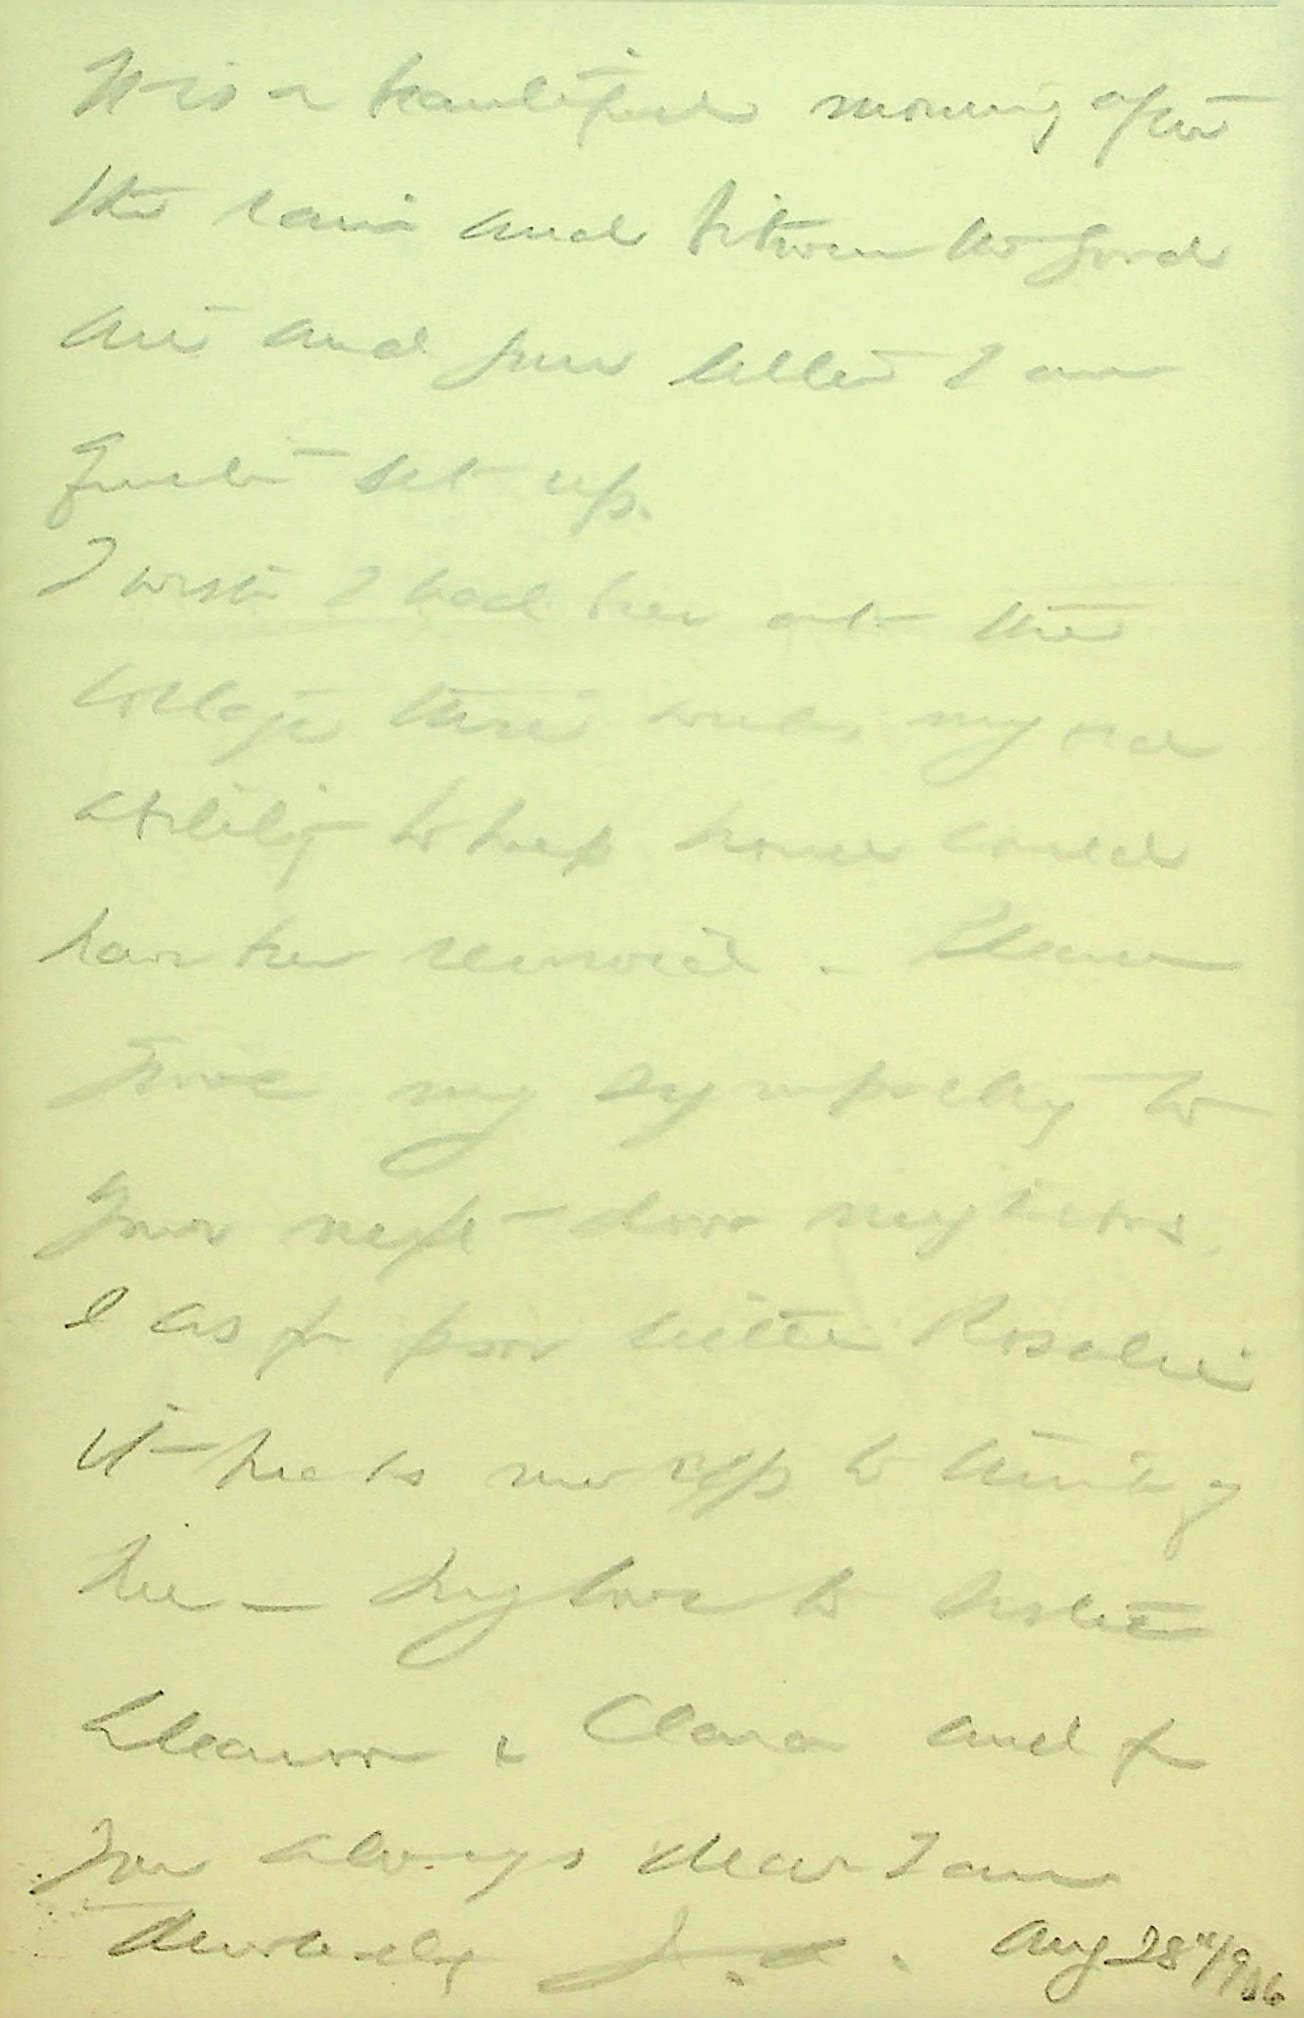 It is a beautiful morning after
the rain and between the good
air and your letter I am
quite set up.
I wish I had been at the
cottage these weeks, my old
ability to keep house could
have been renewed. Please
give my sympathy to
your next-door neighbors.
& as for poor little Rosalie
it me up to think of
her - My love to
Eleanor & Clara and for
you always dear I am
Devotedly J. A. Aug 28" 1906